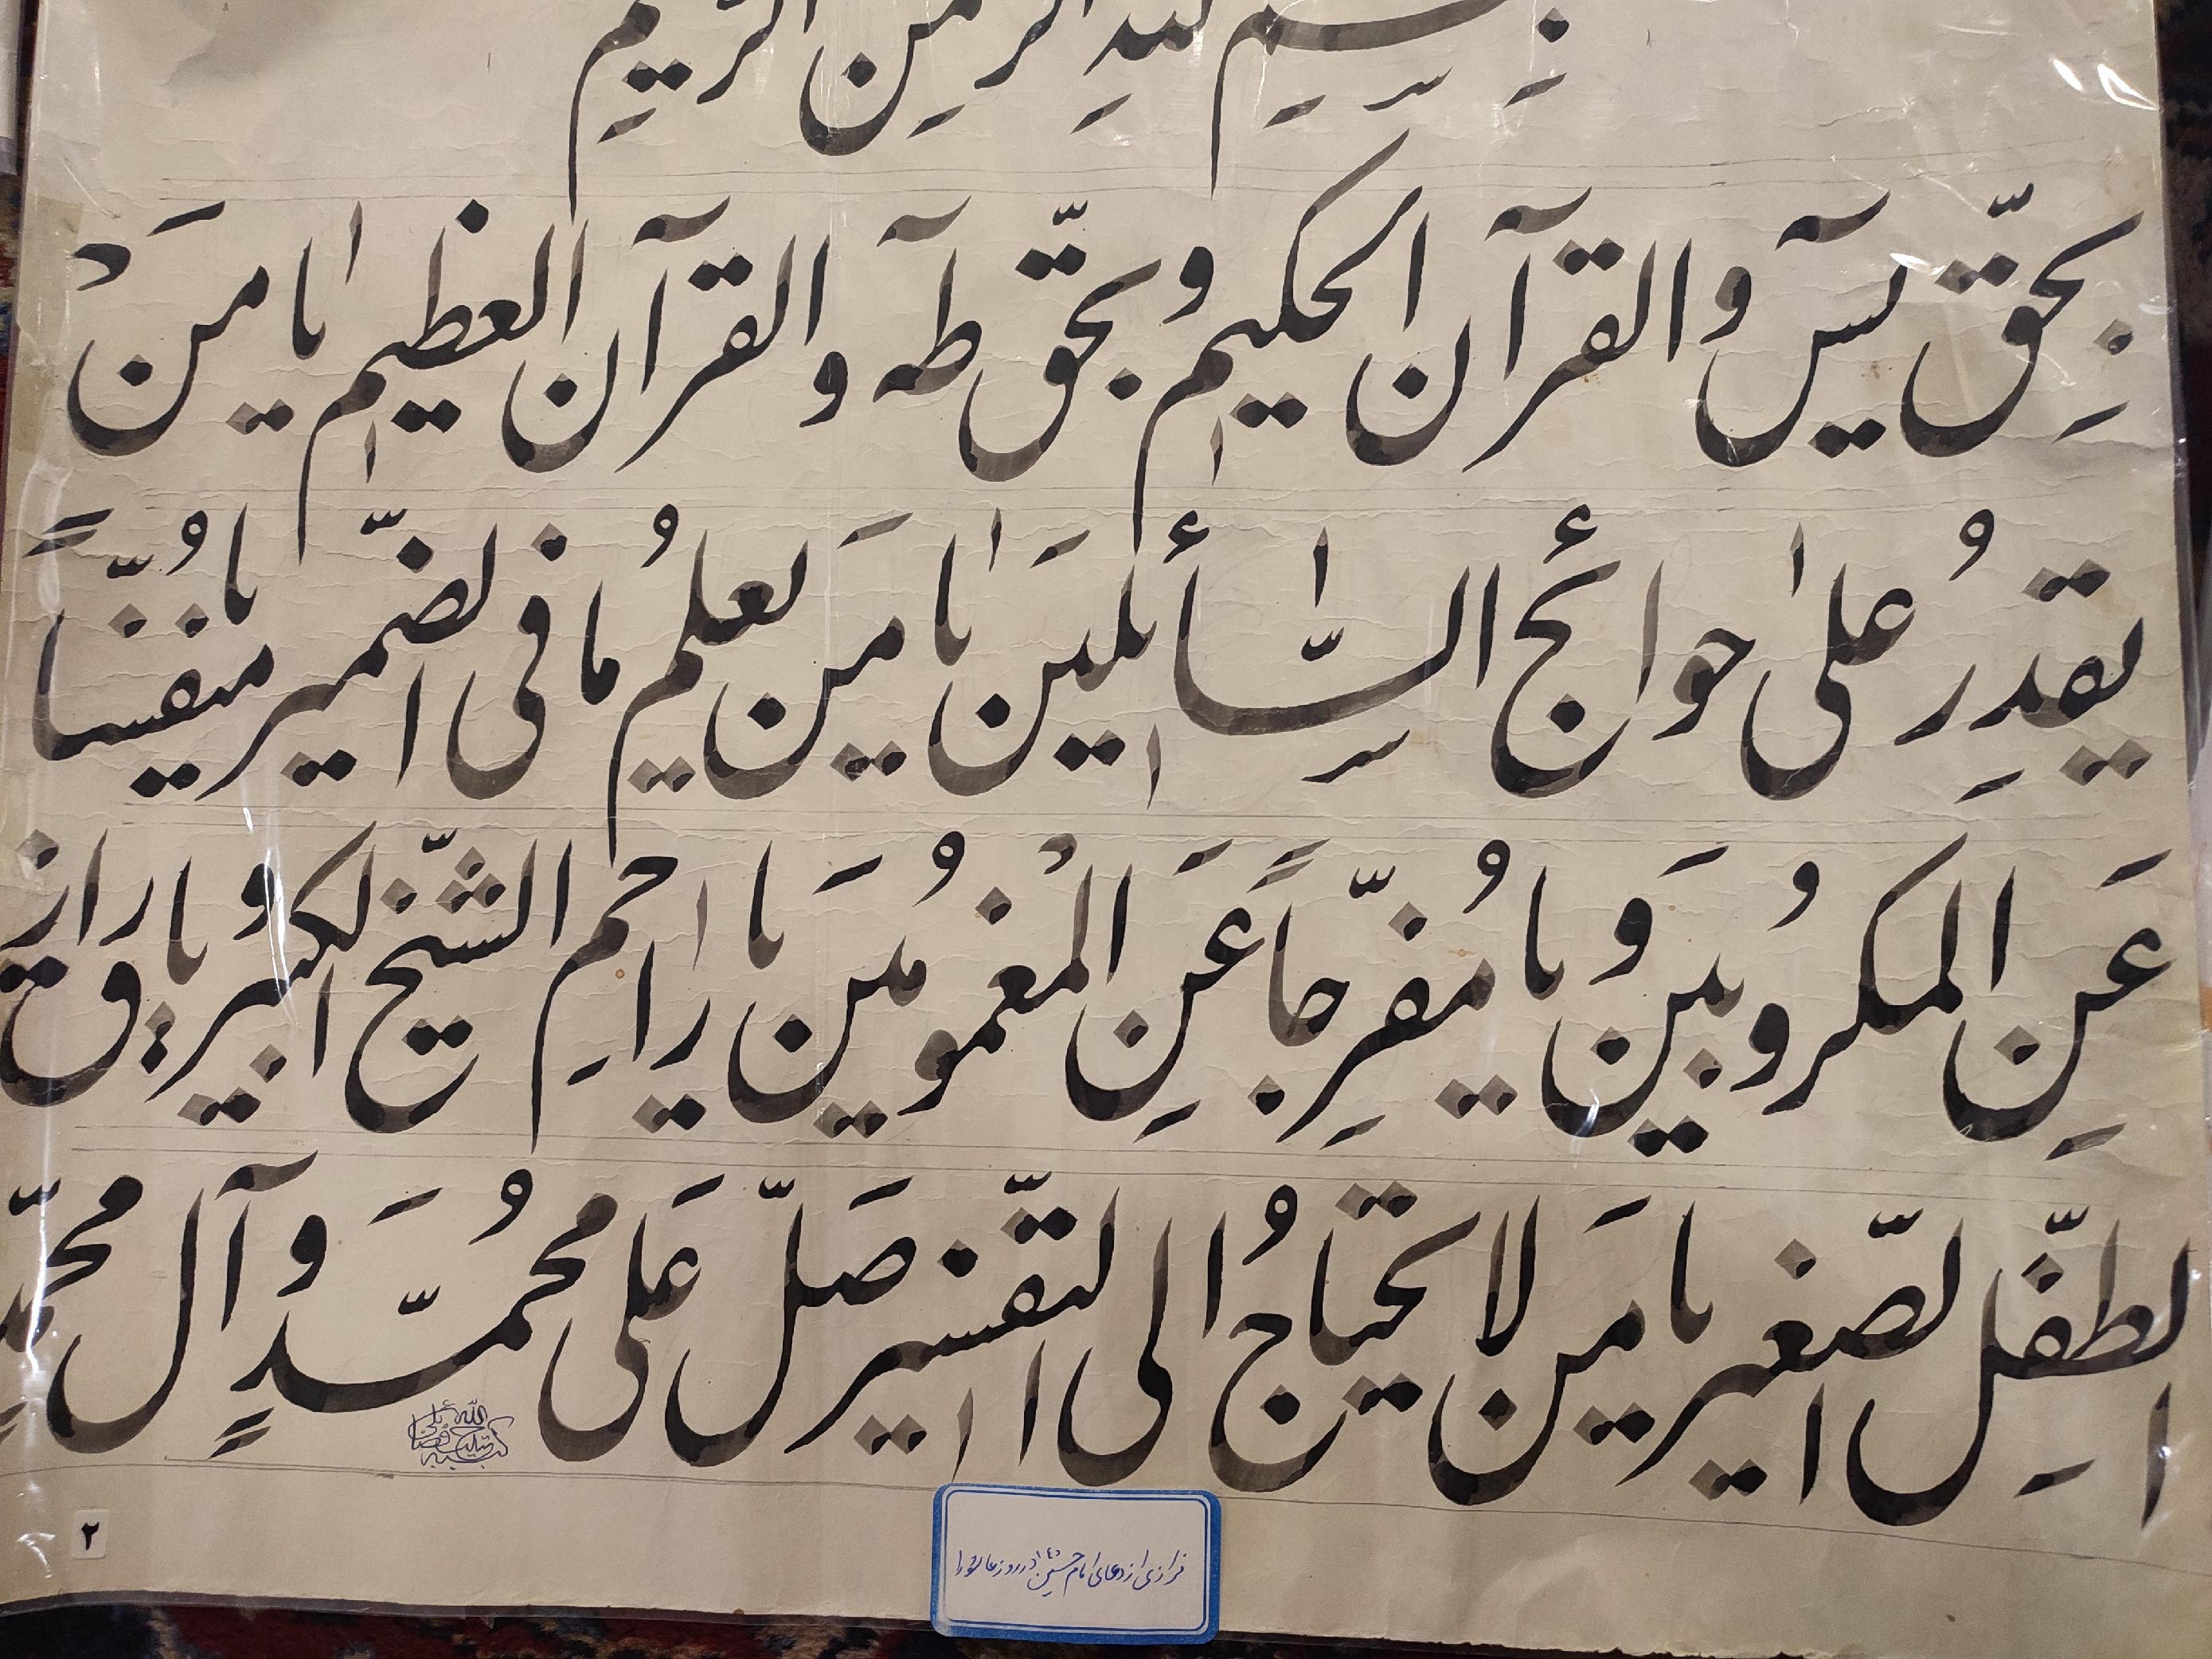 بِسْمِ اللهِ الرحمنِ الرحیمِ
بِحَقّ یسٓ وَالقرآن الحکیم وَ بحَقّ طٰهٓ وَالقرآن العظیم یا مَنْ
یقدِرُ علیٰ حوائج السّائلینَ یا مَن یعلمُ ما فی الضّمیر یا مُنفّساً
عَنِ المکروبین وَ یا مُفرِّجاً عَنِ الْمغمُومینَ یا راحِم الشّیخ الکبیر وَ یا رازق
الطّفِل الصّغیر یا مَن لا یحتاجُ الی التّفسیر صَلّ عَلی محُمَّدٍ وَ آل محمّدٍ
۲
فرازی از دعای امام حسین (ع) در روز عاشورا